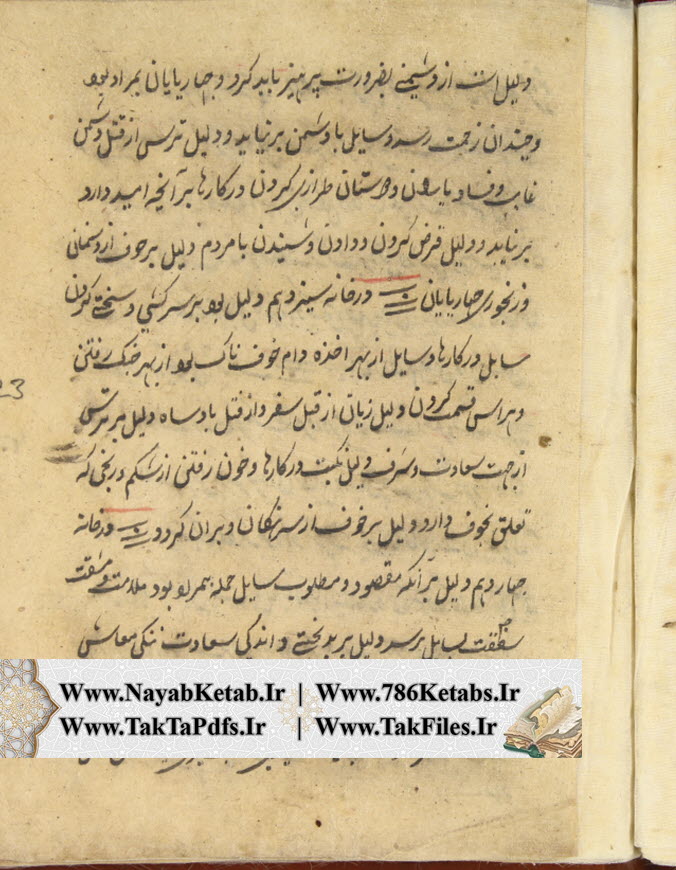 دلیل است از دشمنی بضرورت پرهیز باید کرد و چهارپایان بمراد بود
و چندان زحمت رسد و سایل با دشمن برنیاید و دلیل ترس از قتل دشمن
غایب و فساد یاران و دوستان طرازی کردن در کارها بر آنچه امید دارد
برنیاید و دلیل قرض کردن و دادن و شنیدن با مردم دلیل بر خوف از دشمنان
و رنجوری چهارپایان در خانه سیزدهم دلیل بود بر سرکشی و سختی کردن
سایل در کارها و سایل از بهر خوف ناک بود از بهر جنگ رفتن
و هراس قسمت کردن دلیل زیان از قبل سفر و از قتل پادساه دلیل بر ترس
از جهت سعادت و شرف دلیل نکبت در کارها و خون رفتن از شکم و رنجی که
تعلق بخوف دارد دلیل بر خوف از سرهنکان و بران کردد در خانه
چهاردهم دلیل بر آنکه مقصود و مطلوب سایل جمله بمراد بود ملامت و مشقت
شفقت بسایل برسد دلیل بر بدبختی و اندکی سعادت تنکی معاش
Www.NayabKetab.Ir | Www.786Ketabs.Ir
Www.TakTaPdfs.Ir | Www.TakFiles.Ir
23